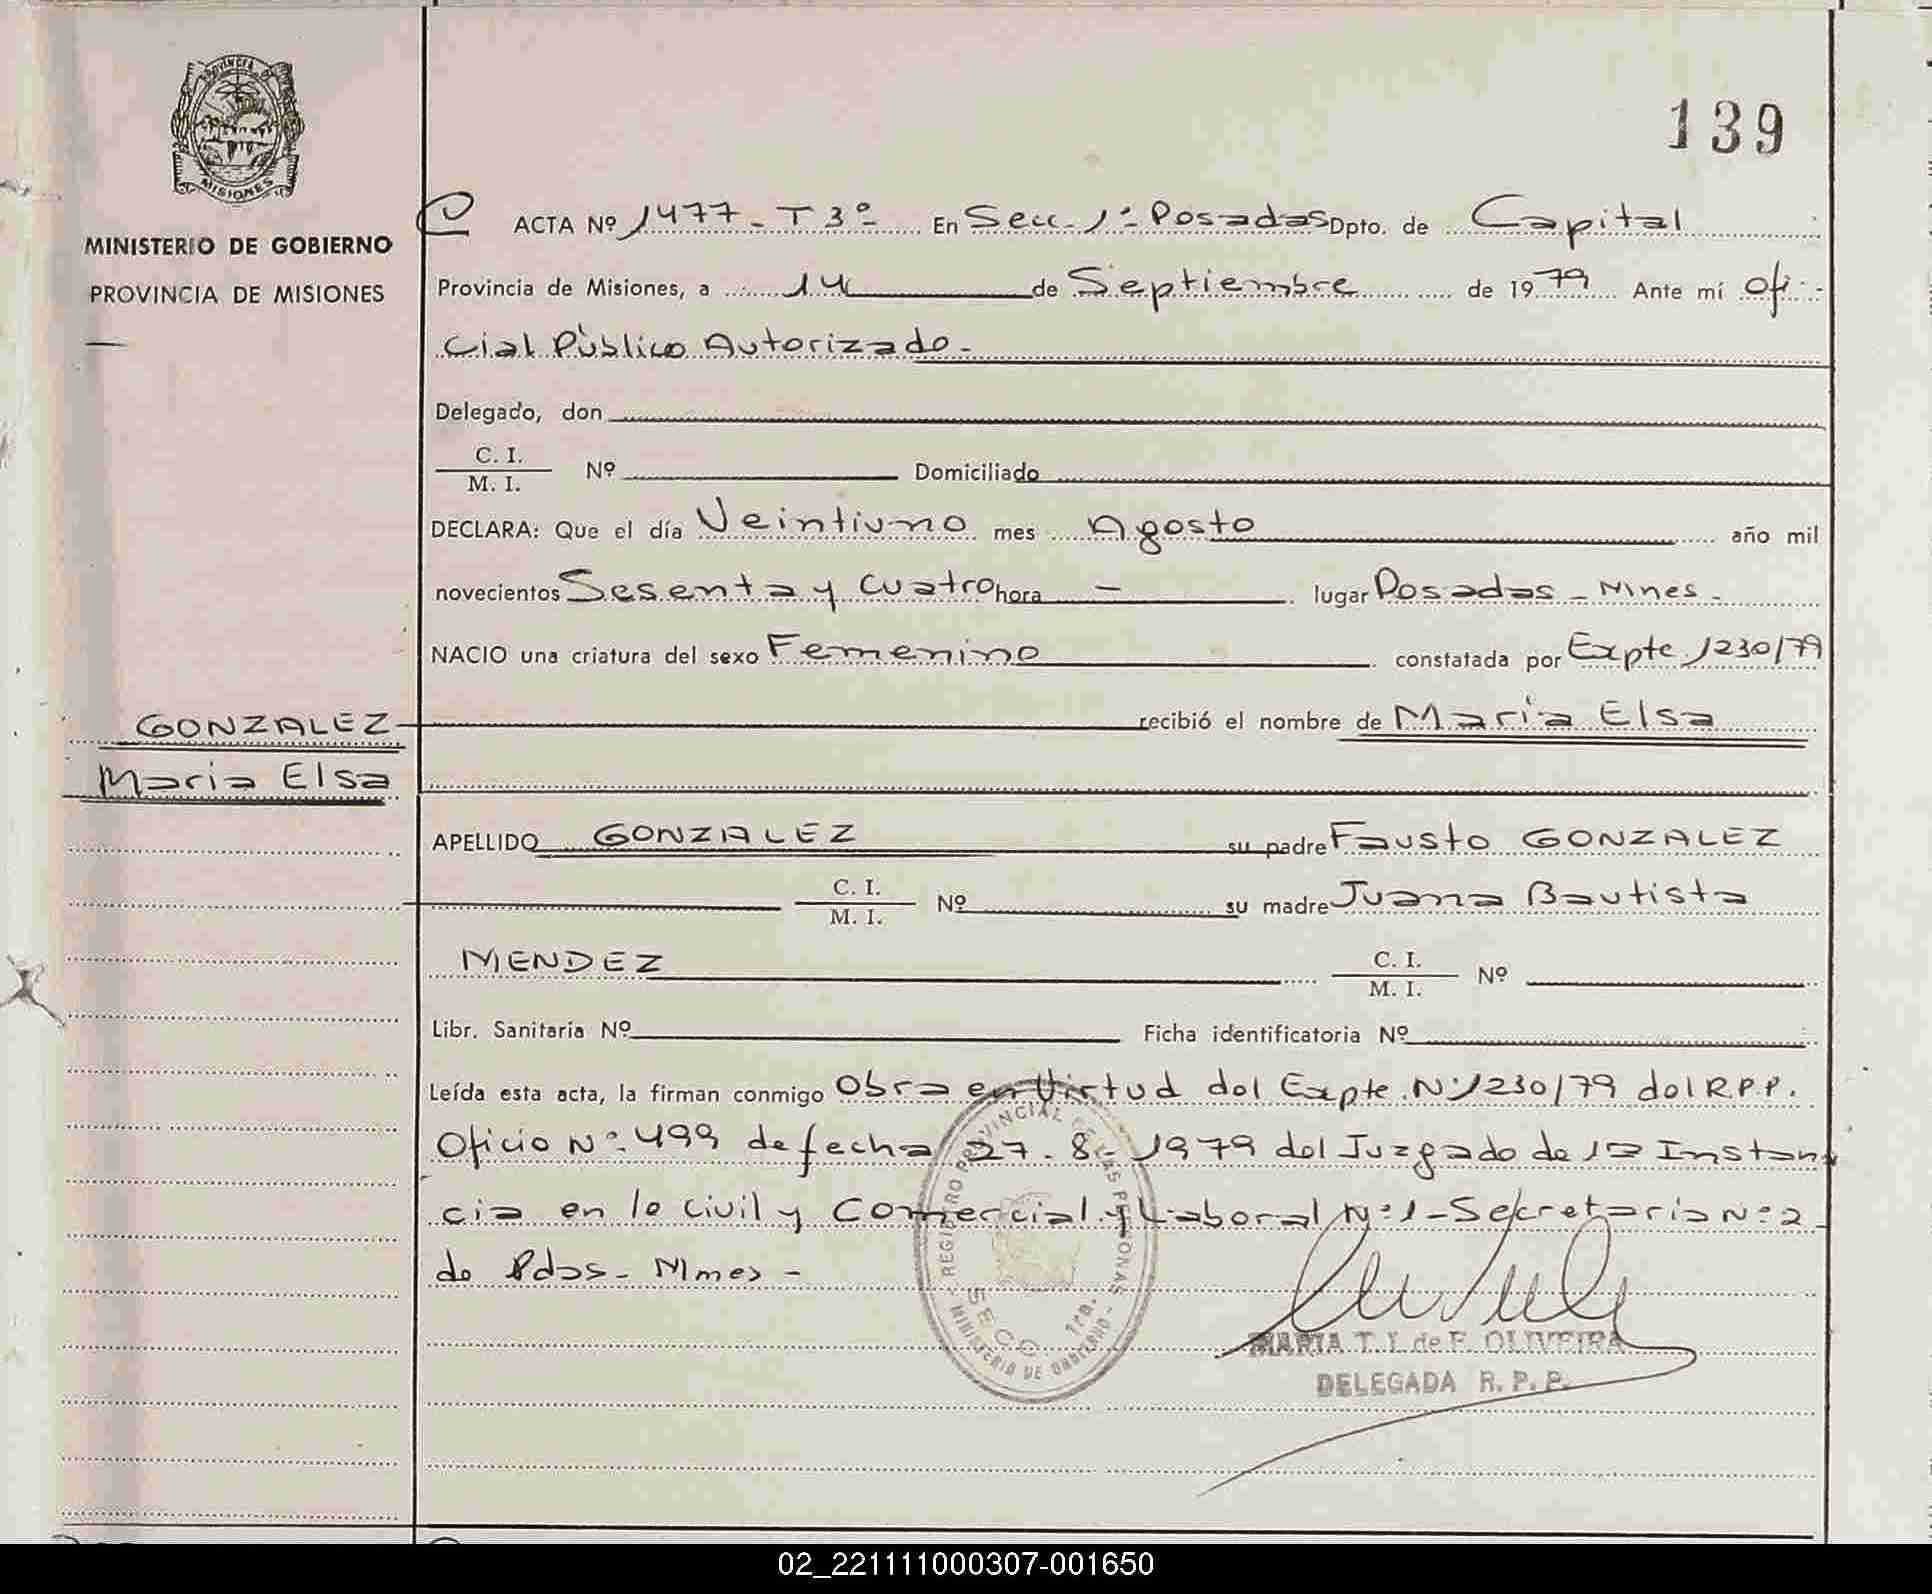 PROVINCIA DE
MISIONES
MINISTERIO DE GOBIERNO
PROVINCIA DE MISIONES
139
ACTA Nº 1477 - T 3º - En Secc. 1ª Posadas Dpto. de Capital
Provincia de Misiones, a 14 de Septiembre de 1979 Ante mí Ofi-
cial Público Autorizado.-
Delegado, don
C. I.
M. I. Nº Domiciliado
DECLARA: Que el día Veintiuno mes Agosto año mil
novecientos Sesenta y Cuatro hora - lugar Posadas - Mnes.
NACIO una criatura del sexo Femenino constatada por Expte 1230/79
GONZALEZ recibió el nombre de María Elsa
Maria Elsa
APELLIDO GONZALEZ su padre Fausto GONZALEZ
C. I.
M. I. Nº su madre Juana Bautista
MENDEZ C. I.
M. I. Nº
Libr. Sanitaria Nº Ficha identificatoria Nº
Leída esta acta, la firman conmigo Obra en Virtud del Expte. Nº 1230/79 del R.P.P.
Oficio Nº 499 de fecha 27-8-1979 del Juzgado de 1a Instan
cia en lo Civil y Comercial y Laboral Nº 1 - Secretaria Nº 2
de Pdas - Mnes -
REGISTRO PROVINCIAL DE LAS PERSONAS
SECC. 1ra.
MINISTERIO DE GOBIERNO
MARIA T. I. de F. OLIVEIRA
DELEGADA R. P. P.
02_221111000307-001650